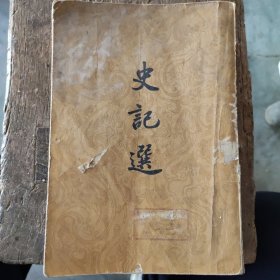 史記選